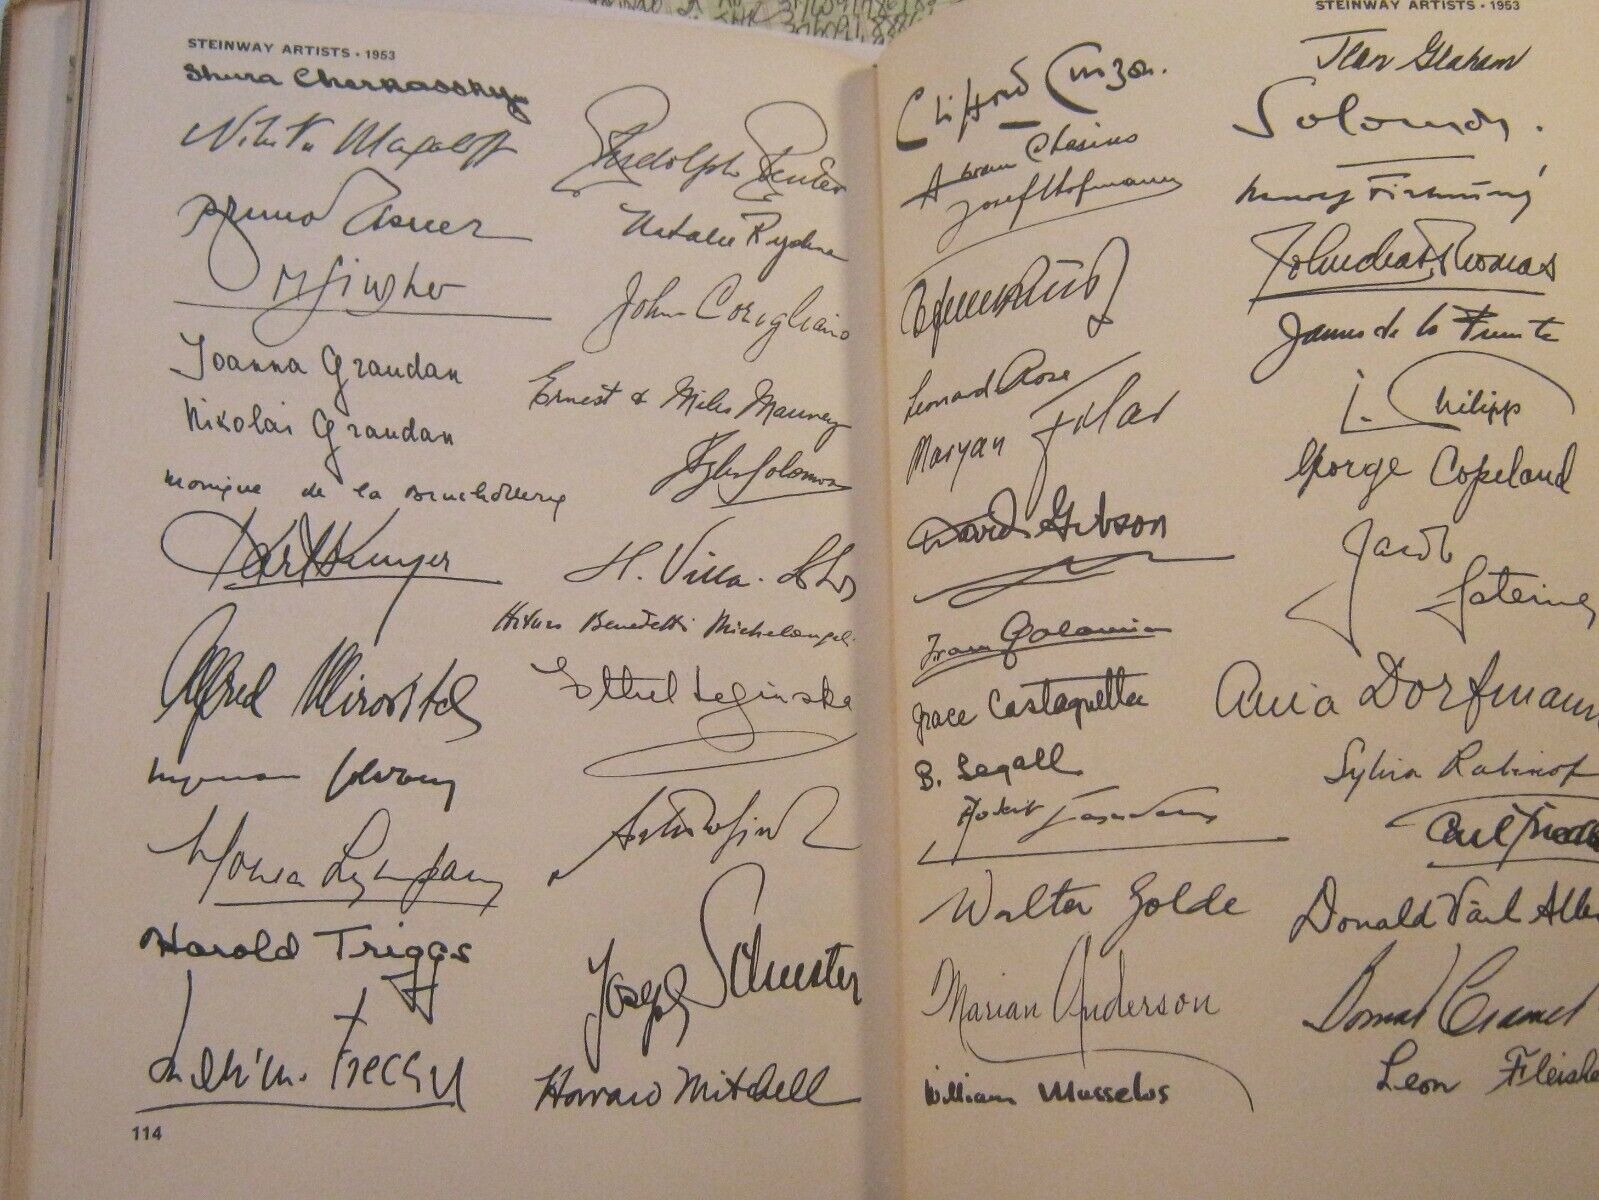 STEINWAY ARTISTS • 1953
Shura Cherkassky
Nikita Magaloff
Bruno Eisner
Joanna Graudan
Nikolai Graudan
monique de la Bruchollerie
Alfred Mirovitch
Moura Lympany
Harold Triggs
114
Rudolph Reuter
Natalie Ryshna
John Corigliano
Ernest & Miles Mauney
Izler Solomon
H. Villa-Lobos
Arturo Benedetti Michelangeli
Ethel Leginska
Joseph Schuster
Howard Mitchell
STEINWAY ARTISTS • 1953
Clifford Curzon.
Abram Chasins
Josef Hofmann
Leonard Rose
Maryan Filar
David Gibson
Ivan Galamian
Grace Castagnetta
B. Segall
Robert
Walter Golde
Marian Anderson
William Masselos
Solomon.
John Charles Thomas
I. Philipp
George Copeland
Jacob Lateiner
Ania Dorfmann
Sylvia Rabinof
Carl
Donald Van
Bomar Cramer
Leon Fleisher